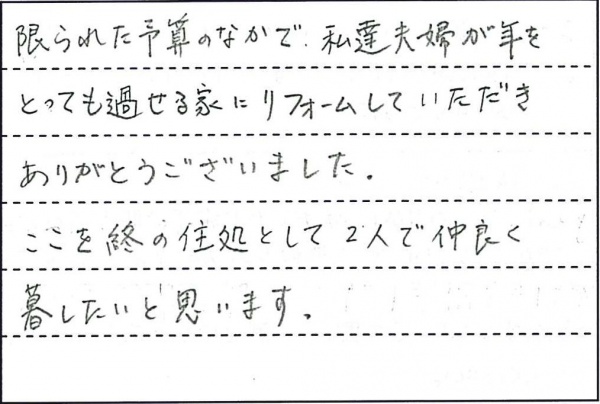 限られた予算のなかで、私達夫婦が年を
とっても過せる家にリフォームしていただき
ありがとうございました。
ここを終の住処として2人で仲良く
暮したいと思います。